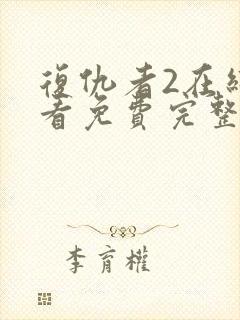 復仇者2在
看免費完整
李育權